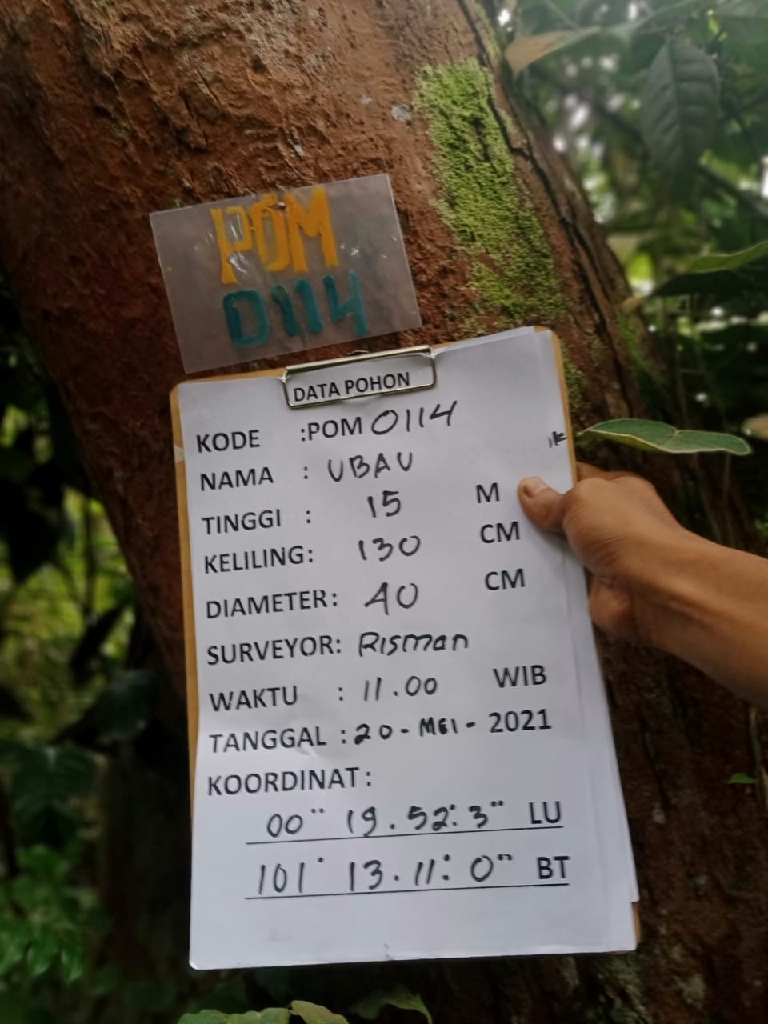 POM
0114
DATA POHON
KODE :POM 0114
NAMA : UBAU
TINGGI : 15 M
KELILING: 130 CM
DIAMETER: 40 CM
SURVEYOR: Risman
WAKTU : 11.00 WIB
TANGGAL : 20 - MEI - 2021
KOORDINAT:
00" 19.52: 3" LU
101° 13.11: 0" BT